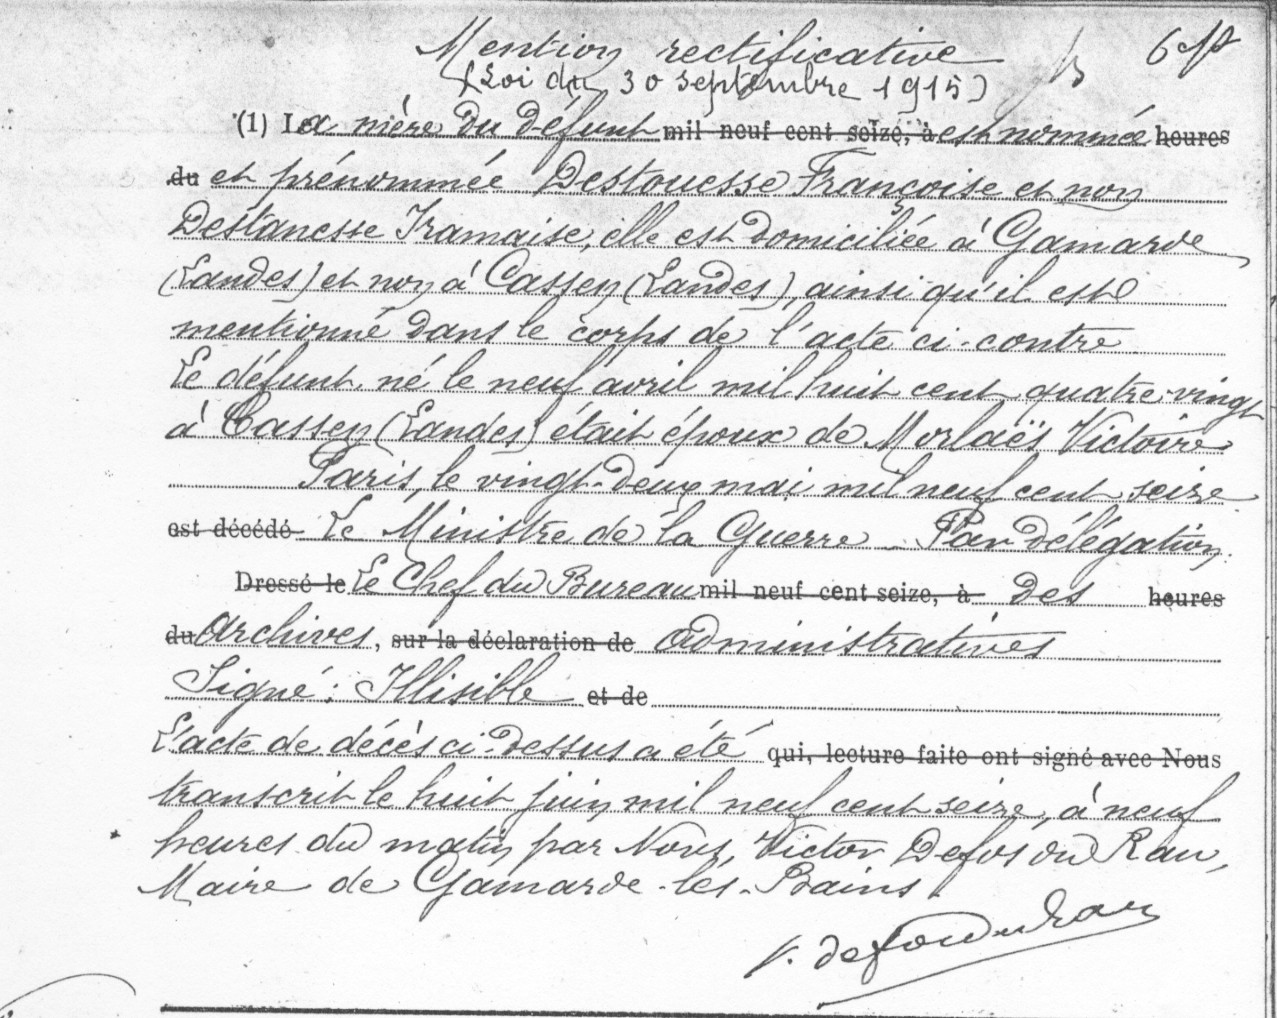 Mention rectificative
(Loi du 30 septembre 1915)
(1) La mère du défunt mil neuf cent seize, à est nommée heures
du et prénommée Destouesse Françoise et non
Destanesse Framaise, elle est domiciliée à Gamarde
(Landes) et non à Cassen (Landes), ainsi qu'il est
mentionné dans le corps de l'acte ci-contre
Le défunt, né le neuf avril mil huit cent quatre-vingt
à Cassen (Landes) était époux de Morlaës Victoire
Paris, le vingt-deux mai mil neuf cent seize
est décédé Le Ministre de la Guerre - Par délégation,
Dressé le Le Chef du Bureau mil neuf cent seize, à des heures
du Archives, sur la déclaration de administratives
Signé: Illisible et de
L'acte de décès ci-dessus a été qui, lecture faite ont signé avec Nous
transcrit le huit juin mil neuf cent seize, à neuf
heures du matin par Nous, Victor Defos du Rau,
Maire de Gamarde-les-Bains
V. defos du Rau